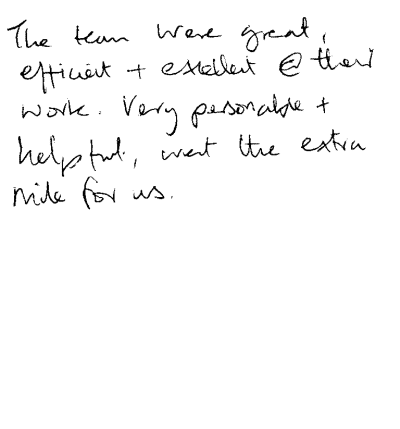 The team were great,
efficient + excellent @ their
work. Very personable +
helpful, went the extra
mile for us.